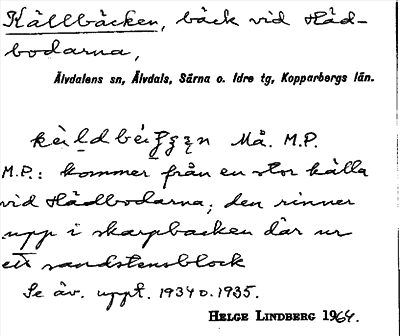 Källbäcken, bäck vid Håd-
bodarna,
Älvdalens sn, Älvdals, Särna o. Idre tg, Kopparbergs län.
Må. M.P.
M.P.: kommer från en stor källa
vid Hådbodarna; den rinner
upp i skarpbacken där ur
ett sandstensblock
Se äv. uppt. 1934 o. 1935.
HELGE LINDBERG 1964.